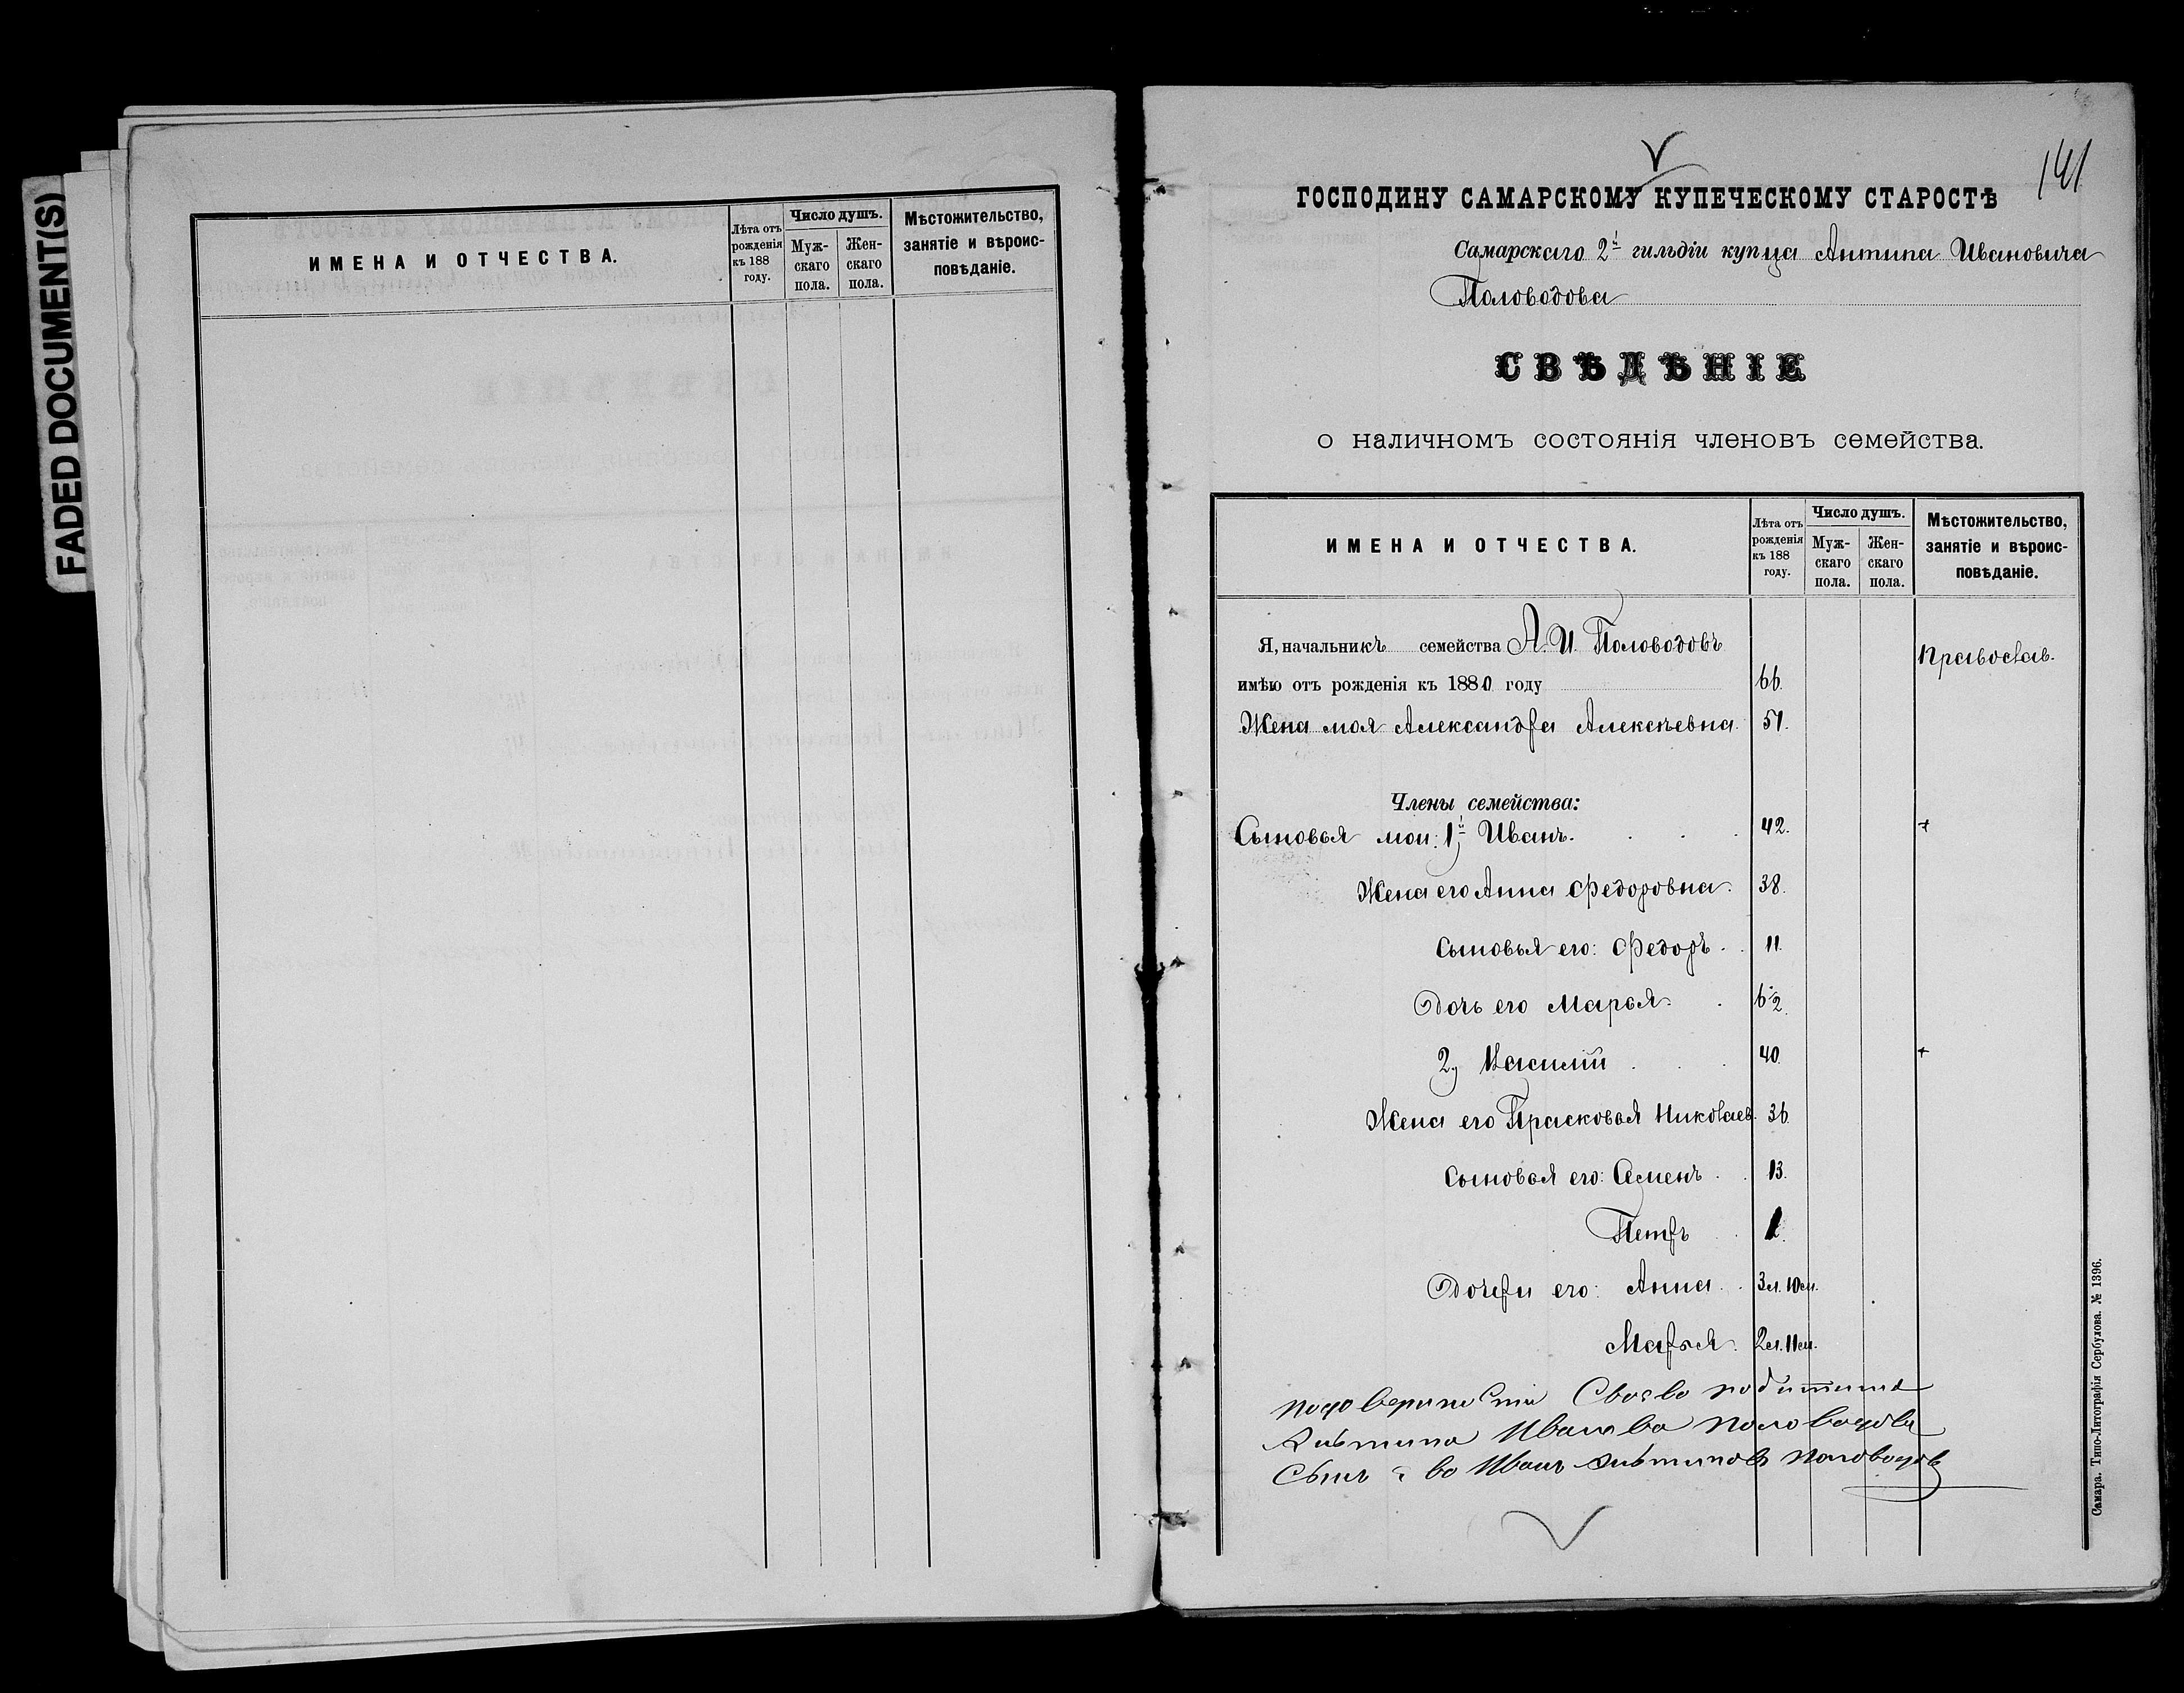 FADED DOCUMENT(S)
ИМЕНА И ОТЧЕСТВА.
Лѣта отъ рожденія къ 188 году.
Число душъ.
Мужскаго пола.
Женскаго пола.
Мѣстожительство, занятіе и вѣроисповѣданіе.
141
ГОСПОДИНУ САМАРСКОМУ КУПЕЧЕСКОМУ СТАРОСТѢ
Самарскаго 2й гильдіи купца Антипа Ивановича
Половодова
СВѢДѢНІЕ
о наличномъ состоянія членовъ семейства.
ИМЕНА И ОТЧЕСТВА.
Лѣта отъ рожденія къ 188 году.
Число душъ.
Мужскаго пола.
Женскаго пола.
Мѣстожительство, занятіе и вѣроисповѣданіе.
Я, начальникъ семейства А. И. Половодовъ Православ.
имѣю отъ рожденія къ 1880 году 66.
Жена моя Александра Алексѣевна. 51.
Члены семейства:
Сыновья мои: 1й Иванъ. 42. +
Жена его Анна Федоровна. 38.
Сыновья его: Федоръ 11.
Дочь его Марья. 6 1/2
2) Василій 40. +
Жена его Прасковья Николаев. 36.
Сыновья его: Семенъ 13.
Петръ
Дочери его: Анна. 3л. 10м.
Марья. 2л. 11м.
Ивана Половодова
Сынъ Иванъ Антиповъ Половодовъ
Самара. Типо-Литографія Сербулова. № 1396.